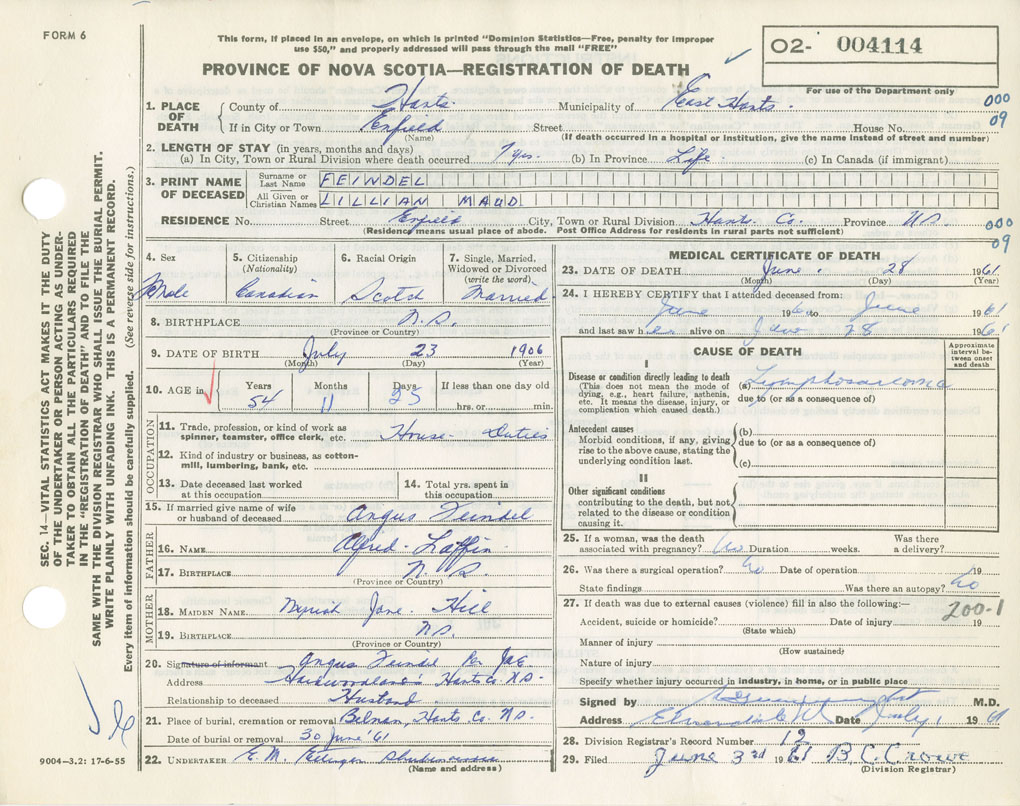 FORM 6
This form, if placed in an envelope, on which is printed "Dominion Statistics—Free, penalty for improper
use $50," and properly addressed will pass through the mail "FREE"
PROVINCE OF NOVA SCOTIA—REGISTRATION OF DEATH
O2- 004114
For use of the Department only
1. PLACE OF DEATH
County of Hants. Municipality of East Hants.
000
09
If in City or Town Enfield Street House No.
(Name) (If death occurred in a hospital or institution, give the name instead of street and number)
2. LENGTH OF STAY (in years, months and days)
(a) In City, Town or Rural Division where death occurred 7 yrs. (b) In Province Life (c) In Canada (if immigrant)
3. PRINT NAME OF DECEASED
Surname or Last Name FEINDEL
All Given or Christian Names LILLIAN MAUD
RESIDENCE No. Street Enfield City, Town or Rural Division Hants Co. Province N.S.
000
09
(Residence means usual place of abode. Post Office Address for residents in rural parts not sufficient)
4. Sex Male
5. Citizenship (Nationality) Canadian
6. Racial Origin Scotch
7. Single, Married, Widowed or Divorced (write the word) Married
8. BIRTHPLACE N.S.
(Province or Country)
9. DATE OF BIRTH July 23 1906
(Month) (Day) (Year)
10. AGE in Years 54 Months 11 Days 25 If less than one day old
hrs. or min.
OCCUPATION
11. Trade, profession, or kind of work as
spinner, teamster, office clerk, etc. House-Duties
12. Kind of industry or business, as cotton-
mill, lumbering, bank, etc.
13. Date deceased last worked
at this occupation
14. Total yrs. spent in
this occupation
15. If married give name of wife
or husband of deceased Angus Feindel
FATHER
16. NAME Alfred Laffin
17. BIRTHPLACE N.S.
(Province or Country)
MOTHER
18. MAIDEN NAME Jane Hill
19. BIRTHPLACE N.S.
(Province or Country)
20. Signature of informant Angus Feindel Per
Address Hants Co N.S.
Relationship to deceased Husband
21. Place of burial, cremation or removal Hants Co. N.S.
Date of burial or removal 30 June '61
22. UNDERTAKER E.M.
(Name and address)
MEDICAL CERTIFICATE OF DEATH
23. DATE OF DEATH June. 28 1961
(Month) (Day) (Year)
24. I HEREBY CERTIFY that I attended deceased from:
June 196 to June 1961
and last saw h er alive on June 28 1961
CAUSE OF DEATH
Approximate interval between onset and death
I
Disease or condition directly leading to death
(This does not mean the mode of
dying, e.g., heart failure, asthenia,
etc. It means the disease, injury, or
complication which caused death.)
(a) Lymphosarcoma
due to (or as a consequence of)
Antecedent causes
Morbid conditions, if any, giving
rise to the above cause, stating the
underlying condition last.
(b)
due to (or as a consequence of)
(c)
II
Other significant conditions
contributing to the death, but not
related to the disease or condition
causing it.
25. If a woman, was the death
associated with pregnancy? No Duration weeks. Was there
a delivery?
26. Was there a surgical operation? No Date of operation 19
State findings Was there an autopsy? No
27. If death was due to external causes (violence) fill in also the following:—
200-1
Accident, suicide or homicide? Date of injury 19
(State which)
Manner of injury
(How sustained)
Nature of injury
Specify whether injury occurred in industry, in home, or in public place
Signed by M.D.
Address Date July 1 1961
28. Division Registrar's Record Number 12
29. Filed June 3rd 1961 B.C. Crowe
(Division Registrar)
9004—3.2: 17-6-55
SEC. 14—VITAL STATISTICS ACT MAKES IT THE DUTY
OF THE UNDERTAKER OR PERSON ACTING AS UNDER-
TAKER TO OBTAIN ALL THE PARTICULARS REQUIRED
IN THE "REGISTRATION OF DEATH" AND TO FILE THE
SAME WITH THE DIVISION REGISTRAR WHO SHALL ISSUE THE BURIAL PERMIT.
WRITE PLAINLY WITH UNFADING INK. THIS IS A PERMANENT RECORD.
Every item of information should be carefully supplied. (See reverse side for instructions.)